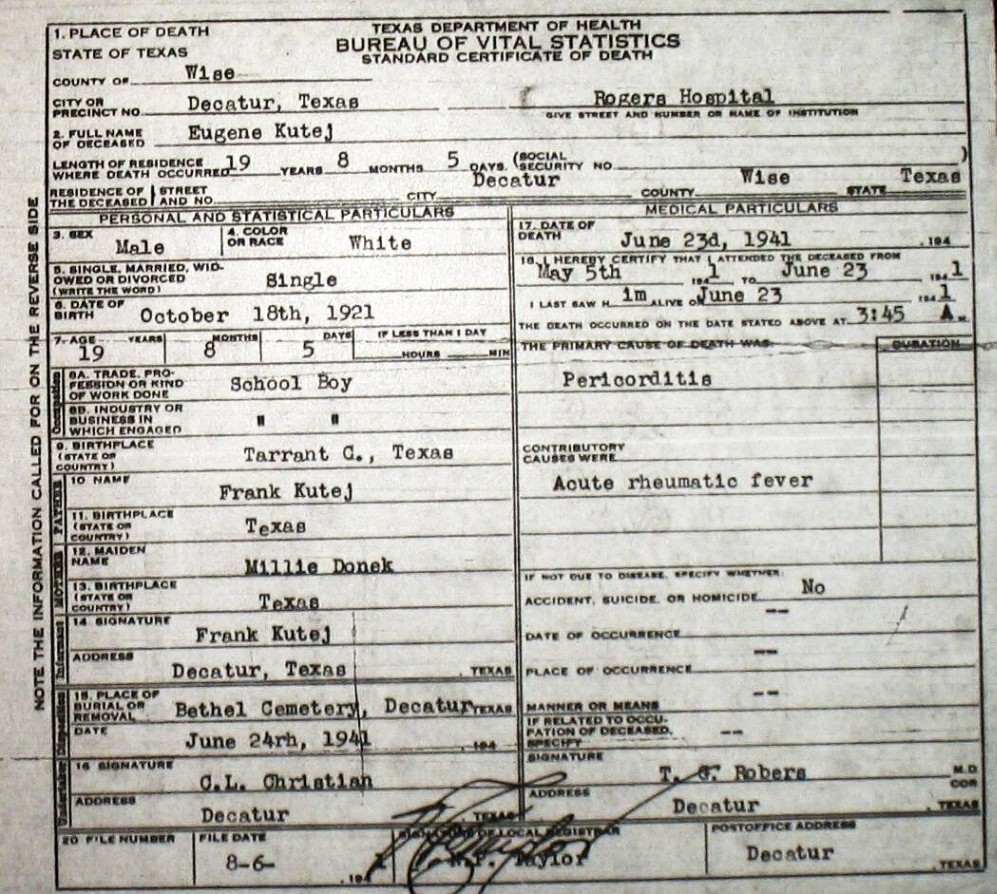 TEXAS DEPARTMENT OF HEALTH
BUREAU OF VITAL STATISTICS
STANDARD CERTIFICATE OF DEATH
1. PLACE OF DEATH
STATE OF TEXAS
COUNTY OF Wise
CITY OR PRECINCT NO. Decatur, Texas Rogers Hospital
GIVE STREET AND NUMBER OR NAME OF INSTITUTION
2. FULL NAME OF DECEASED Eugene Kutej
LENGTH OF RESIDENCE WHERE DEATH OCCURRED 19 YEARS 8 MONTHS 5 DAYS. (SOCIAL SECURITY NO. )
RESIDENCE OF THE DECEASED STREET AND NO. CITY Decatur COUNTY Wise STATE Texas
NOTE THE INFORMATION CALLED FOR ON THE REVERSE SIDE
PERSONAL AND STATISTICAL PARTICULARS
3. SEX Male
4. COLOR OR RACE White
5. SINGLE, MARRIED, WIDOWED OR DIVORCED (WRITE THE WORD) Single
6. DATE OF BIRTH October 18th, 1921
7. AGE YEARS MONTHS DAYS IF LESS THAN 1 DAY
19 8 5 HOURS MIN
Occupation
8A. TRADE, PROFESSION OR KIND OF WORK DONE School Boy
8B. INDUSTRY OR BUSINESS IN WHICH ENGAGED " "
9. BIRTHPLACE (STATE OR COUNTRY) Tarrant C., Texas
FATHER
10 NAME Frank Kutej
11. BIRTHPLACE (STATE OR COUNTRY) Texas
MOTHER
12. MAIDEN NAME Millie Donek
13. BIRTHPLACE (STATE OR COUNTRY) Texas
Informant
14 SIGNATURE Frank Kutej
ADDRESS Decatur, Texas , TEXAS
Disposition
15. PLACE OF BURIAL OR REMOVAL Bethel Cemetery, Decatur TEXAS
DATE June 24rh, 1941 , 194
Undertaker
16 SIGNATURE C.L. Christian
ADDRESS Decatur , TEXAS
MEDICAL PARTICULARS
17. DATE OF DEATH June 23d, 1941 , 194
18. I HEREBY CERTIFY THAT I ATTENDED THE DECEASED FROM
May 5th 194 1 TO June 23 194 1
I LAST SAW H im ALIVE ON June 23 194 1
THE DEATH OCCURRED ON THE DATE STATED ABOVE AT 3:45 A M.
THE PRIMARY CAUSE OF DEATH WAS: DURATION
Pericorditis
CONTRIBUTORY CAUSES WERE
Acute rheumatic fever
IF NOT DUE TO DISEASE, SPECIFY WHETHER:
ACCIDENT, SUICIDE, OR HOMICIDE No
DATE OF OCCURRENCE --
PLACE OF OCCURRENCE --
MANNER OR MEANS --
IF RELATED TO OCCUPATION OF DECEASED, SPECIFY --
SIGNATURE T. G. Robers M.D. COR
ADDRESS Decatur , TEXAS
20 FILE NUMBER
FILE DATE
8-6- , 194 1
SIGNATURE OF LOCAL REGISTRAR
Taylor
POSTOFFICE ADDRESS
Decatur , TEXAS